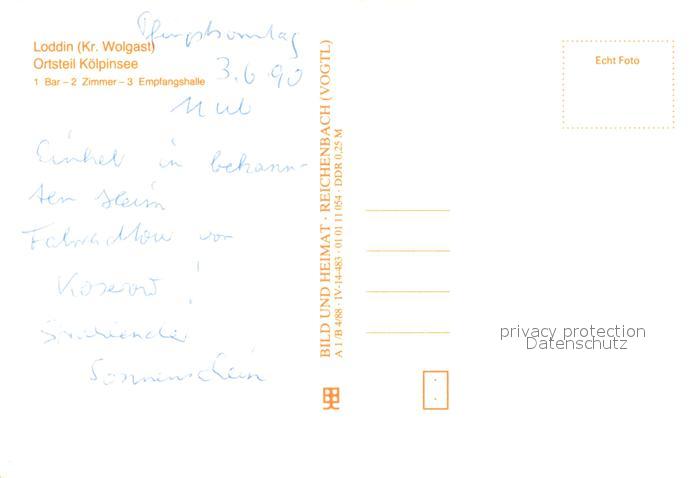 Pfingstsonntag
Loddin (Kr. Wolgast)
Ortsteil Kölpinsee
3.6.90
1 Bar – 2 Zimmer – 3 Empfangshalle
Einkehr in bekann-
ten Heim
von
Koserow!
Strahlender
Sonnenschein
BILD UND HEIMAT · REICHENBACH (VOGTL)
A 1 /B 4/88 · IV-14-483 · 01 01 11 054 · DDR 0,25 M
Echt Foto
privacy protection
Datenschutz